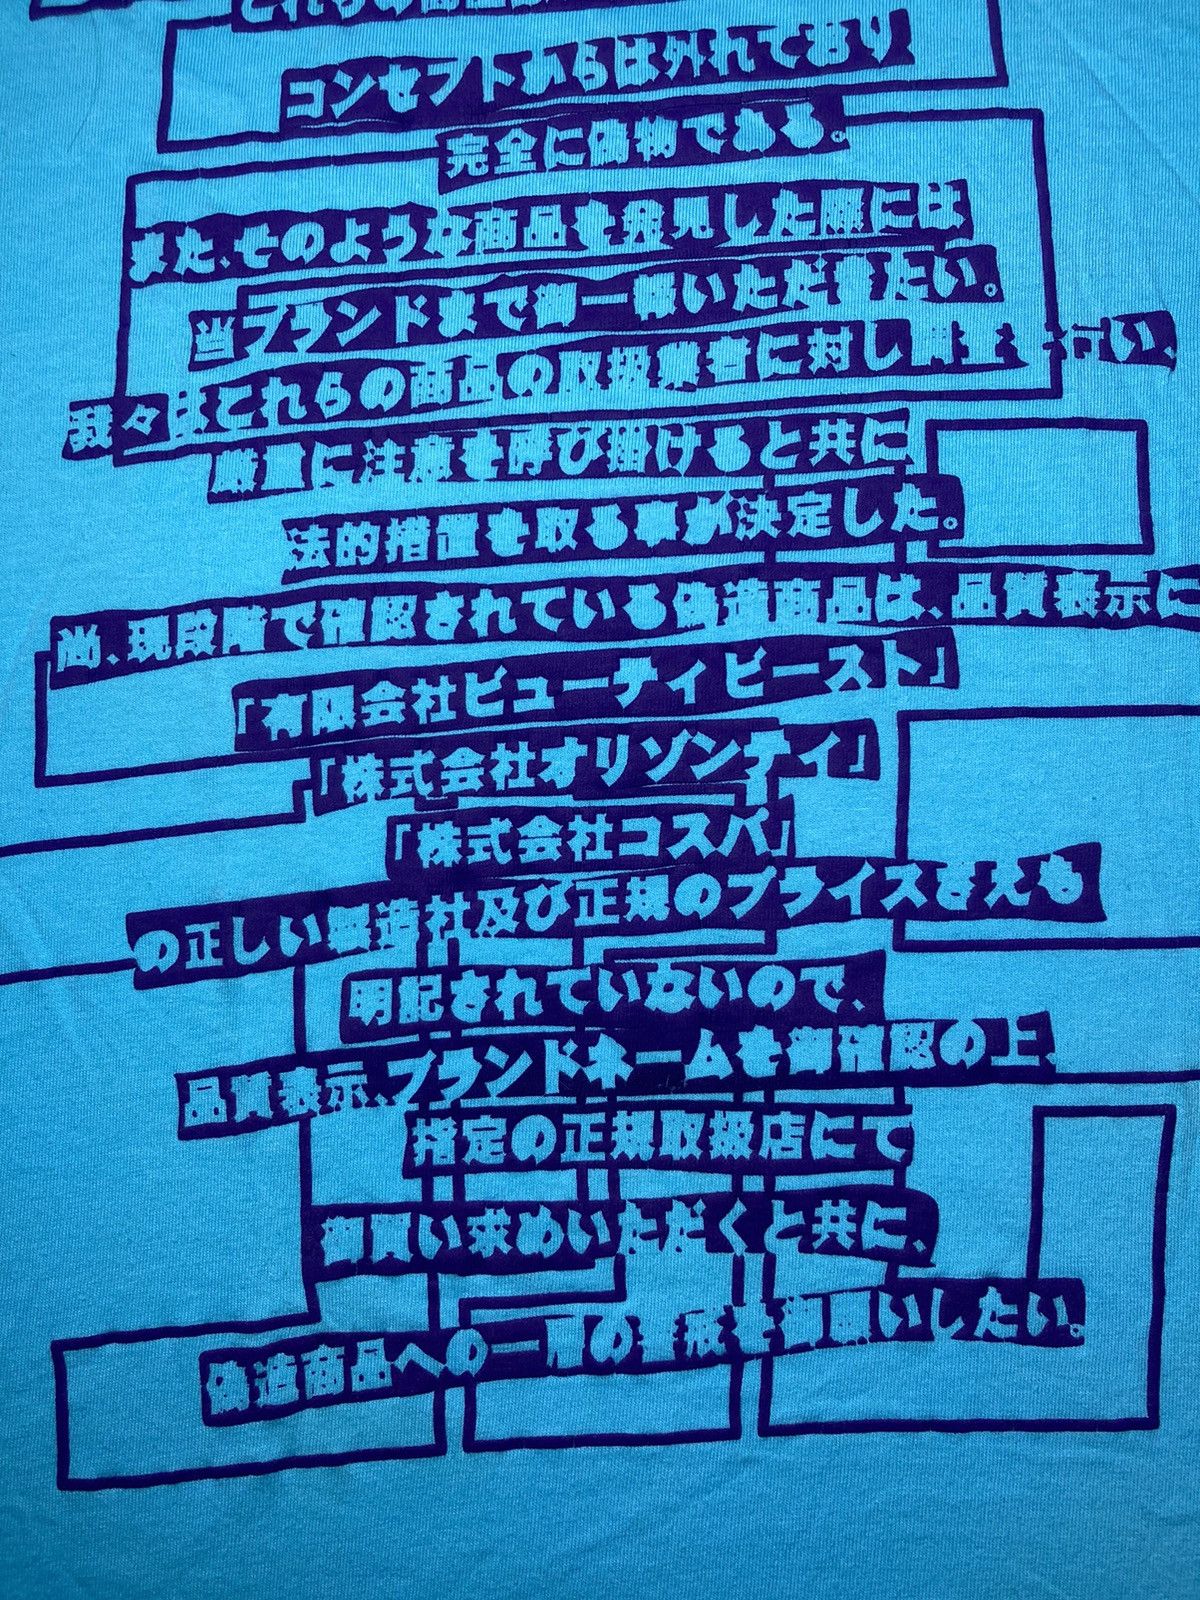 これらの商品は
コンセプトからは外れており
完全に偽物である。
また、そのような商品を発見した際には
当ブランドまで御一報いただきたい。
我々はこれらの商品の取扱業者に対し調査を行い、
厳重に注意を呼び掛けると共に
法的措置を取る事が決定した。
尚、現段階で確認されている偽造商品は、品質表示に
「有限会社ビューティビースト」
「株式会社オリゾンティ」
「株式会社コスパ」
の正しい製造社及び正規のプライスさえも
明記されていないので、
品質表示、ブランドネームを御確認の上、
指定の正規取扱店にて
御買い求めいただくと共に、
偽造商品への一層の警戒を御願いしたい。